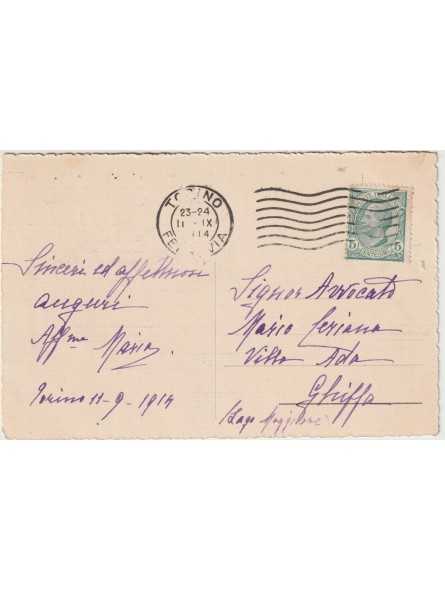 TORINO
23-24
11 - IX
1914
FERROVIA
5 5
Sinceri ed affettuosi
auguri
Aff.me Maria
Torino 11-9-1914
Signor Avvocato
Mario
Villa Ada
Ghiffa
(Lago Maggiore)